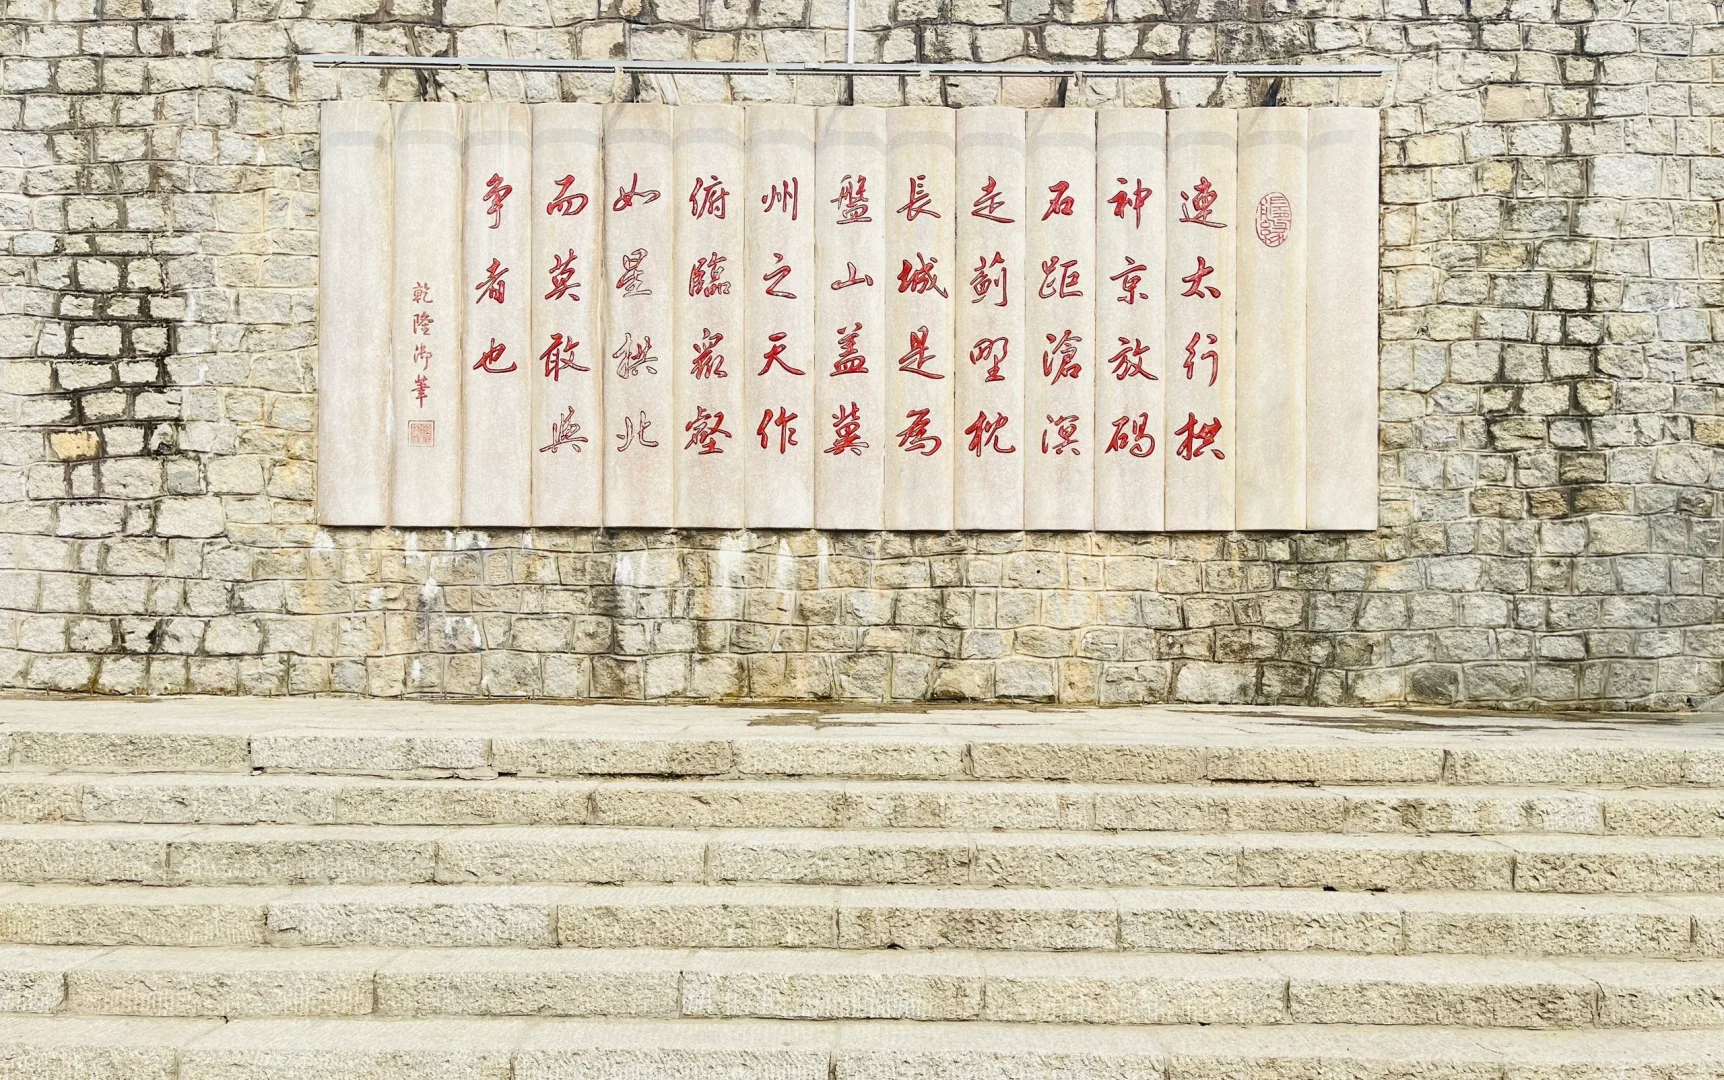 連太行拱
神京放碣
石距滄溟
走薊野枕
長城是為
盤山盖冀
州之天作
俯臨巖壑
如星拱北
而莫敢與
争者也
乾隆御筆